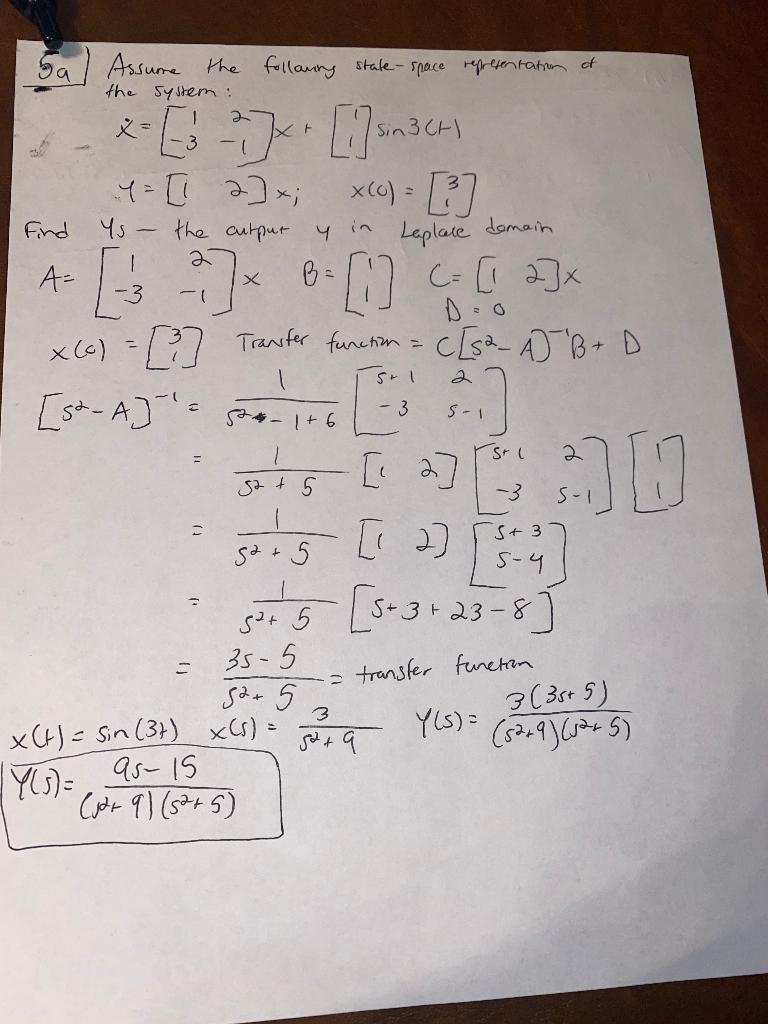 5a) Assume the following state-space representation of
the system:
ẋ = [1 2; -3 -1] x + [1; 1] sin3(t)
Y = [1 2] x; x(0) = [3; 1]
Find Ys — the output y in Leplace domain
A = [1 2; -3 -1] x B = [1; 1] C = [1 2] x
D = 0
x(0) = [3; 1] Transfer function = C[s² - A]⁻¹B + D
[s² - A]⁻¹ = 1/(s² - 1 + 6) [s+1 2; -3 s-1]
= 1/(s² + 5) [1 2] [s+1 2; -3 s-1] [1; 1]
= 1/(s² + 5) [1 2] [s+3; s-4]
= 1/(s² + 5) [s + 3 + 23 - 8]
= (3s - 5)/(s² + 5) = transfer function
x(t) = sin(3t) x(s) = 3/(s² + 9) Y(s) = 3(3s + 5)/((s² + 9)(s² + 5))
Y(s) = (9s - 15)/((s² + 9)(s² + 5))